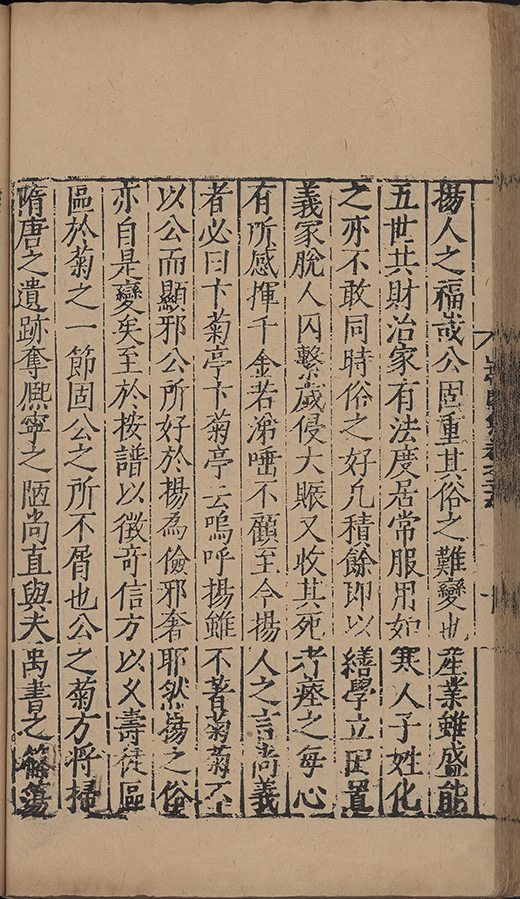 揚人之福或公固重其俗之難變也産業雖盛能
五世共財治家有法度居常服用如寒人子姓化
之亦不敢同時俗之好凡積餘即以繕學立田置
義家脫人囚繫歲侵大賑又收其死者瘞之每心
有所感揮千金若涕唾不顧至今揚人之言尚義
者必曰卞菊亭卞菊亭云嗚呼揚雖不著菊菊不
以公而顯邪公所好於揚為儉邪奢耶然揚之俗
亦自是變矣至於按譜以徵奇信方以乂壽徒區
區於菊之一節固公之所不屑也公之菊方將掃
隋唐之遺跡奪熙寧之陋尚直與夫禹書之篠簜